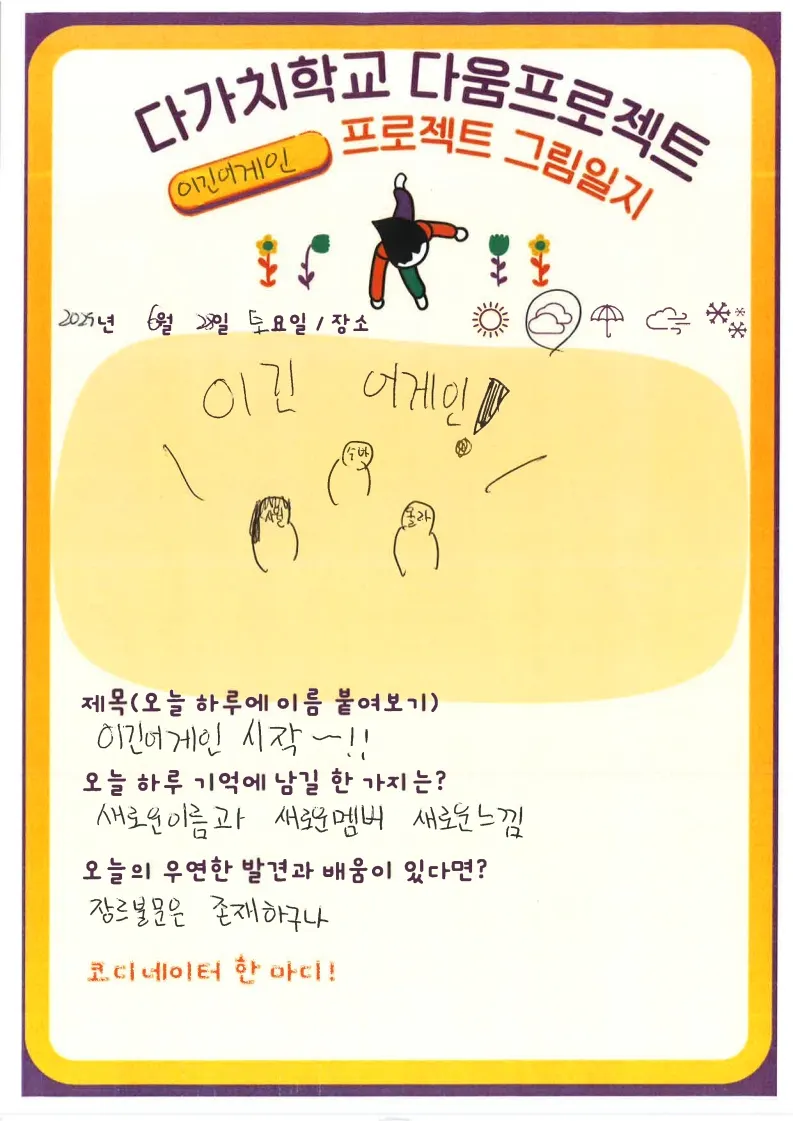 다가치학교 다움프로젝트
프로젝트 그림일지
이긴어게인
2025년 6월 28일 토요일 / 장소
이긴 어게인!
수박
몰라
제목(오늘 하루에 이름 붙여보기)
이긴어게인 시작~!!
오늘 하루 기억에 남길 한 가지는?
새로운이름과 새로운멤버 새로운느낌
오늘의 우연한 발견과 배움이 있다면?
장르불문은 존재하구나
코디네이터 한 마디!